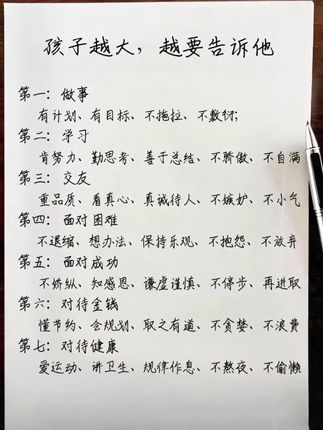 孩子越大，越要告诉他
第一：做事
有计划、有目标、不拖拉、不敷衍;
第二：学习
肯努力、勤思考、善于总结、不骄傲、不自满
第三：交友
重品质、看真心、真诚待人、不嫉妒、不小气
第四：面对困难
不退缩、想办法、保持乐观、不抱怨、不放弃
第五：面对成功
不娇纵、知感恩、谦虚谨慎、不停步、再进取
第六：对待金钱
懂节约、会规划、取之有道、不贪婪、不浪费
第七：对待健康
爱运动、讲卫生、规律作息、不熬夜、不偷懒